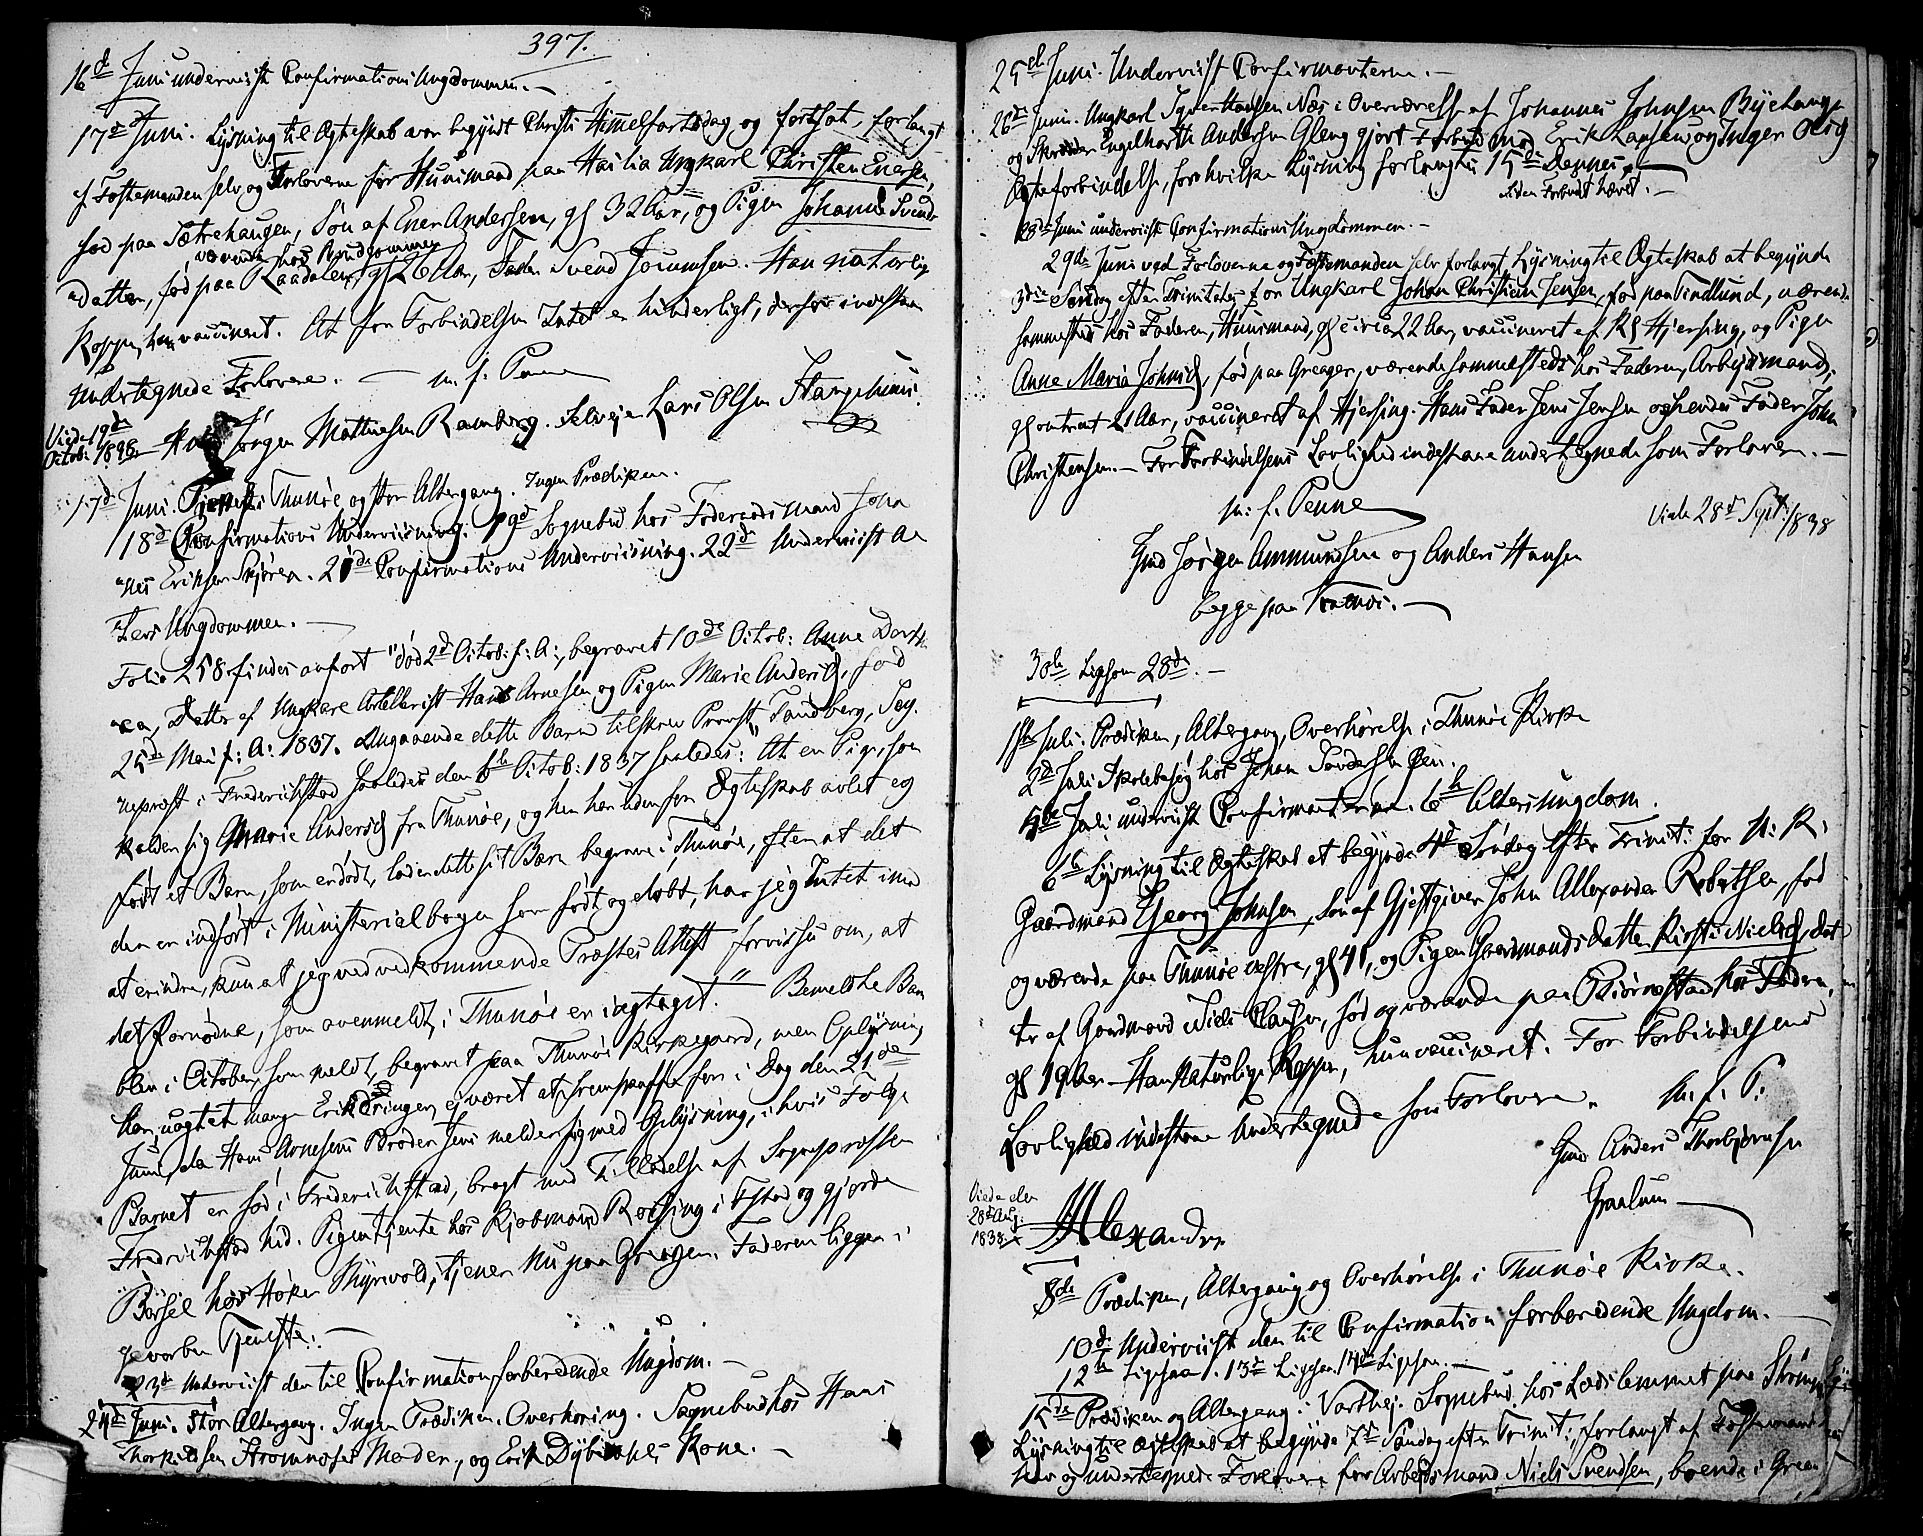 397.
16d Juni underviist Confirmations Ungdommen. —
17de Juni. Lysning til Ægteskab var begyndt Christi Himmelfartsdag og fortsat, forlangt
af Fæstemanden selv og Forloverne for Huusmand paa Ungkarl Christen Enersen,
fød paa Sætrehaugen, Søn af Ener Andersen, gl 32 Aar, og Pigen Johanne Svends
værende hos Brudgommen
Datter, fød paa Raadalen, gl Aar, Fader Svend Joramsen. Han naturlig
Kopper, hun vaccineret. At for Forbindelsen Intet er hinderligt, derfor indestaar
undertegnede Forlovere. — m. f. Penne
Viede 19de
Octob: Jørgen Mathiesen Ramberg. Selveier Lars Olsen
17d Juni. Tjeneste i Thunøe og stor Altergang. Ingen Prædiken.
18d Confirmations Underviisning. 19d Sognebud hos Foderaadsmand Johan
nes Eriksen Skjøren. 21de Confirmations Underviisning. 22de Underviist Al
ters Ungdommen. —
Folio 258 findes anført "død 2d Octob: f: A:, begravet 10de Octob: Anne Dorth
ea, Datter af Ungkarl Artillerist Hans Arnesen og Pigen Marie Andersd, fød
25de Mai f: A: 1837. Angaaende dette Barn tilskrev Provst Tandberg, Sog
neprest i Frederichstad saaledes den 6te Octob: 1837 saaledes: "At en Pige, som
kalder sig Marie Andersd fra Thunøe, og hun har udenfor Ægteskab avlet og
født et Barn, som er dødt, lader dette sit Barn begrave i Thunøe, efter at det
der er indført i Ministerialbogen som født og døbt, har jeg Intet imod
at erindre, kun at jeg ved vedkommende Præstes Attest forvisses om, at
det fornødne, som ovenmeldt, i Thunøe er iagttaget." Bemeldte Barn
blev i October, som meldt, begravet paa Thunøe Kirkegaard, men Oplysning
har, uagtet mange Erindringer, ei været at fremskaffe før i Dag den 21de
Juni, da Hans Arnesens Broder Jens melder sig med Oplysning, i hvis Følge
Barnet er fød i Frederichstad, bragt med Tilladelse af Sognepræsten
Fredrichstad hid. Pigen tjente hos Kjøbmand i Fstad og gjorde
Barsel hos Høker Thyrvold, tjener nu paa Greager. Faderen ligger i
gevorben Tjeneste. —
23d Underviist den til Confirmation forberedende Ungdom. —
24de Juni. Stor Altergang. Ingen Prædiken. Overhøring. Sognebud hos Hans
Thorkildsen Strømnæses Moder, og Erik Kone. —
25de Juni. Underviist Confirmanterne. —
26de Juni. Ungkarl Hansen Næs i Overværelse af Johannes Johnsen Byehaugen
og Skræder Engelharth Andersen Gleng gjort Forbud mod Erik Larsen og Inger Olsd
Ægteforbindelse, for hvilke Lysning forlangtes 15de Dennes. —
Siden Forbudet hævet. —
28de Juni underviist Confirmations Ungdommen. —
29de Juni ved Forloverne og Fæstemanden selv forlangt Lysning til Ægteskab at begynde
3die Søndag efter Trinitatis for Ungkarl Johan Christian Jensen, fød paa Tindlund, værende
sammesteds hos Faderen, Huusmand, gl circa 22 Aar, vaccineret af Kl Hjersing, og Pigen
Anne Maria Johnsd, fød paa Greager, værende sammesteds hos Faderen, Arbeidsmand,
gl omtrent 21 Aar, vaccineret af Hjersing. Hans Fader Jens Jensen og hendes Fader John
Christensen. — For Forbindelsens Lovlighed indestaae undertegnede som Forlovere. —
m: f. Penne
Viede 28d Sept: 1838
Gmd Jørgen Ammundsen og Anders Hansen
begge paa
30te Ligesom 28de. —
1ste Juli. Prædiken, Altergang, Overhørelse i Thunøe Kirke
2d Juli Skolebesøg hos Johan
5te Juli underviist Confirmanterne. 6te Altersungdom.
6te Lysning til Ægteskab at begynde 4d Søndag Efter Trinit: for
Gaardmand Georg Johnsen, Søn af Gjestgiver John Allexander Robertsen, fød
og værende paa Thunøe vestre, gl 41, og Pigen Gaardmandsdatter Kirsti Nielsd, Dat
ter af Gaardmand Niels Hansen, fød og værende paa Biørnstad hos Faderen,
gl 19 Aar. Han Naturlige Kopper, hun vaccineret. For Forbindelsens
Lovlighed indestaae Undertegnede som Forlovere. m. f. P:
Gmd Anders Thorbjørnsen
Graalum —
Viede den
28d Aug:
1838
Alexander
8de Prædiken, Altergang og Overhørelse i Thunøe Kirke.
10de Underviist den til Confirmation forberedende Ungdom. —
12te Ligesaa. 13de Ligesaa. 14de Ligesaa. —
15de Prædiken og Altergang i Varthej. Sognebud hos Lædslemmet paa
Lysning til Ægteskab at begynde 7de Søndag efter Trinit:, forlangt af Fæstemanden
selv og undertegnede Forlovere for Arbeidsmand Niels Svendsen, boende i Grea